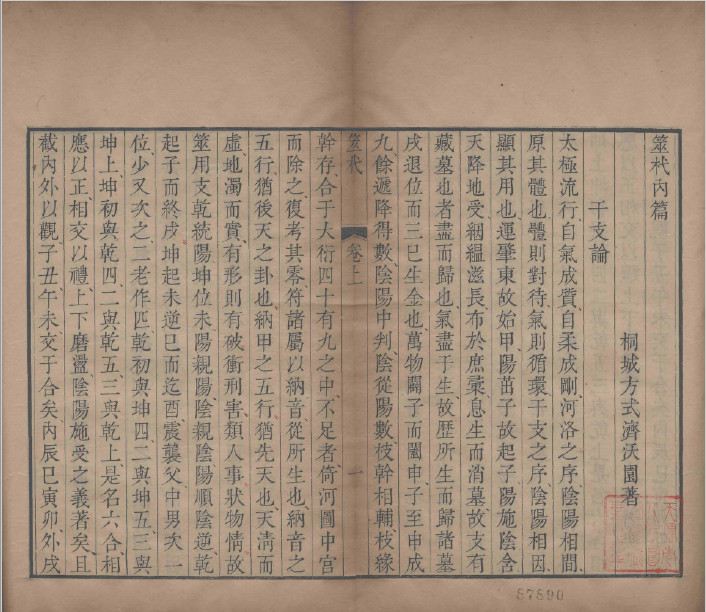 筮杙內篇
桐城方式濟沃園著
干支論
太極流行自氣成質自柔成剛河洛之序陰陽相間
原其體也體則對待氣則循環干支之序陰陽相因
顯其用也運肇東故始甲陽茁子故起子陽施陰含
天降地受絪縕滋長布於庶彙息生而消墓故支有
藏墓也者盡而歸也氣盡于生故歷所生而歸諸墓
戌退位而三巳生金也萬物闢子而闔申子至申成
九餘遞降得數陰陽中判陰從陽數枝幹相輔枝緣
筮杙 卷上 一
幹存合于大衍四十有九之中不足者倚河圖中宮
而除之復考其零符諸屬以納音從所生也納音之
五行猶後天之卦也納甲之五行猶先天也天清而
虛地濁而實有形則有破衝刑害類人事狀物情故
筮用支乾統陽坤位未陽親陽陰親陰陽順陰逆乾
起子而終戌坤起未逆巳而迄酉震襲父中男次一
位少又次之二老作匹乾初與坤四二與坤五三與
坤上坤初與乾四二與乾五三與乾上是名六合相
應以正相交以禮上下磨盪陰陽施受之義著矣且
截內外以觀子丑午未交于合矣內辰巳寅卯外戌
87890